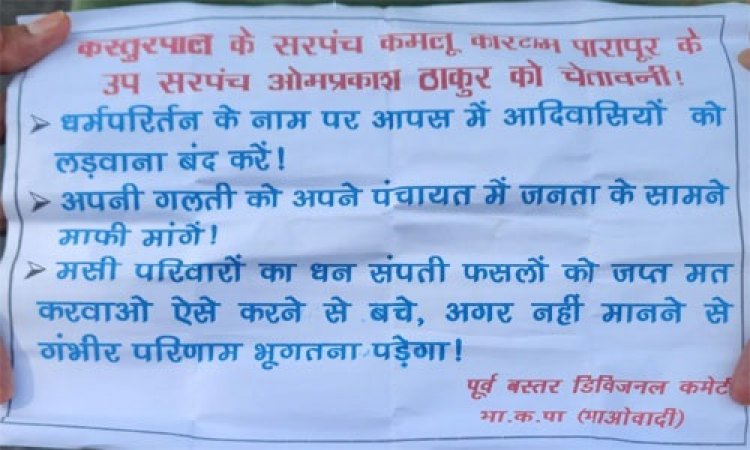 कस्तुरपाल के सरपंच कमलू कारटाम पारापूर के
उप सरपंच ओमप्रकाश ठाकुर को चेतावनी!
➤ धर्मपरिर्तन के नाम पर आपस में आदिवासियों को
लड़वाना बंद करें!
➤ अपनी गलती को अपने पंचायत में जनता के सामने
माफी मांगें!
➤ मसी परिवारों का धन संपती फसलों को जप्त मत
करवाओ ऐसे करने से बचे, अगर नहीं मानने से
गंभीर परिणाम भूगतना पड़ेगा!
पूर्व बस्तर डिविजनल कमेटी
भा.क.पा (माओवादी)